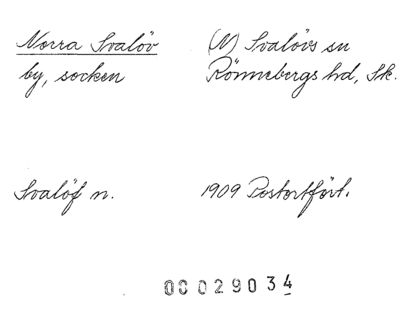 Norra Svalöv (N) Svalövs sn
by, socken Rönnebergs hd, Sk.
Svalöf n. 1909 Postortfört.
00029034